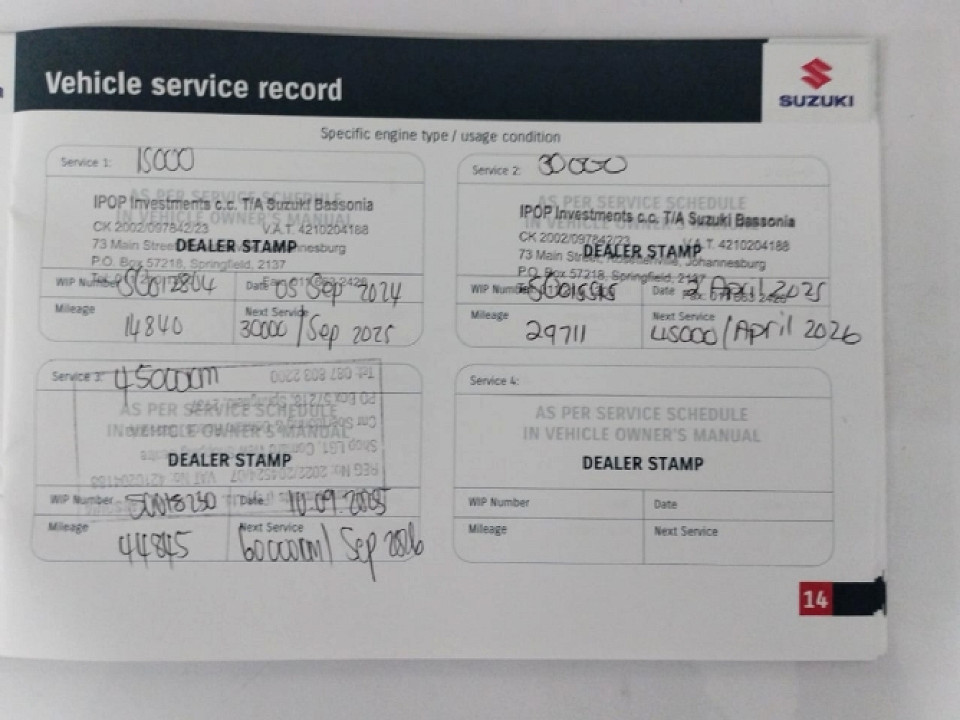 Vehicle service record
SUZUKI
Specific engine type / usage condition
Service 1: 15000
AS PER SERVICE SCHEDULE
IN VEHICLE OWNER'S MANUAL
IPOP Investments c.c. T/A Suzuki Bassonia
CK 2002/097842/23 V.A.T. 4210204188
73 Main Street
DEALER STAMP
P.O. Box 57218, Springfield, 2137
WIP Number SC012804 Date 05 Sep 2024
Mileage 14840
Next Service 30000 / Sep 2025
Service 2: 30000
AS PER SERVICE SCHEDULE
IPOP Investments c.c. T/A Suzuki Bassonia
CK 2002/097842/23 V.A.T. 4210204188
73 Main Street, Johannesburg
DEALER STAMP
P.O. Box 57218, Springfield, 2137
WIP Number Date 2 April 2025
Mileage 29711
Next Service 45000 / April 2026
Service 3: 45000km
AS PER SERVICE SCHEDULE
IN VEHICLE OWNER'S MANUAL
DEALER STAMP
WIP Number SC018230 Date 10.09.2025
Mileage 44845
Next Service 60000km / Sep 2026
Service 4:
AS PER SERVICE SCHEDULE
IN VEHICLE OWNER'S MANUAL
DEALER STAMP
WIP Number Date
Mileage Next Service
14